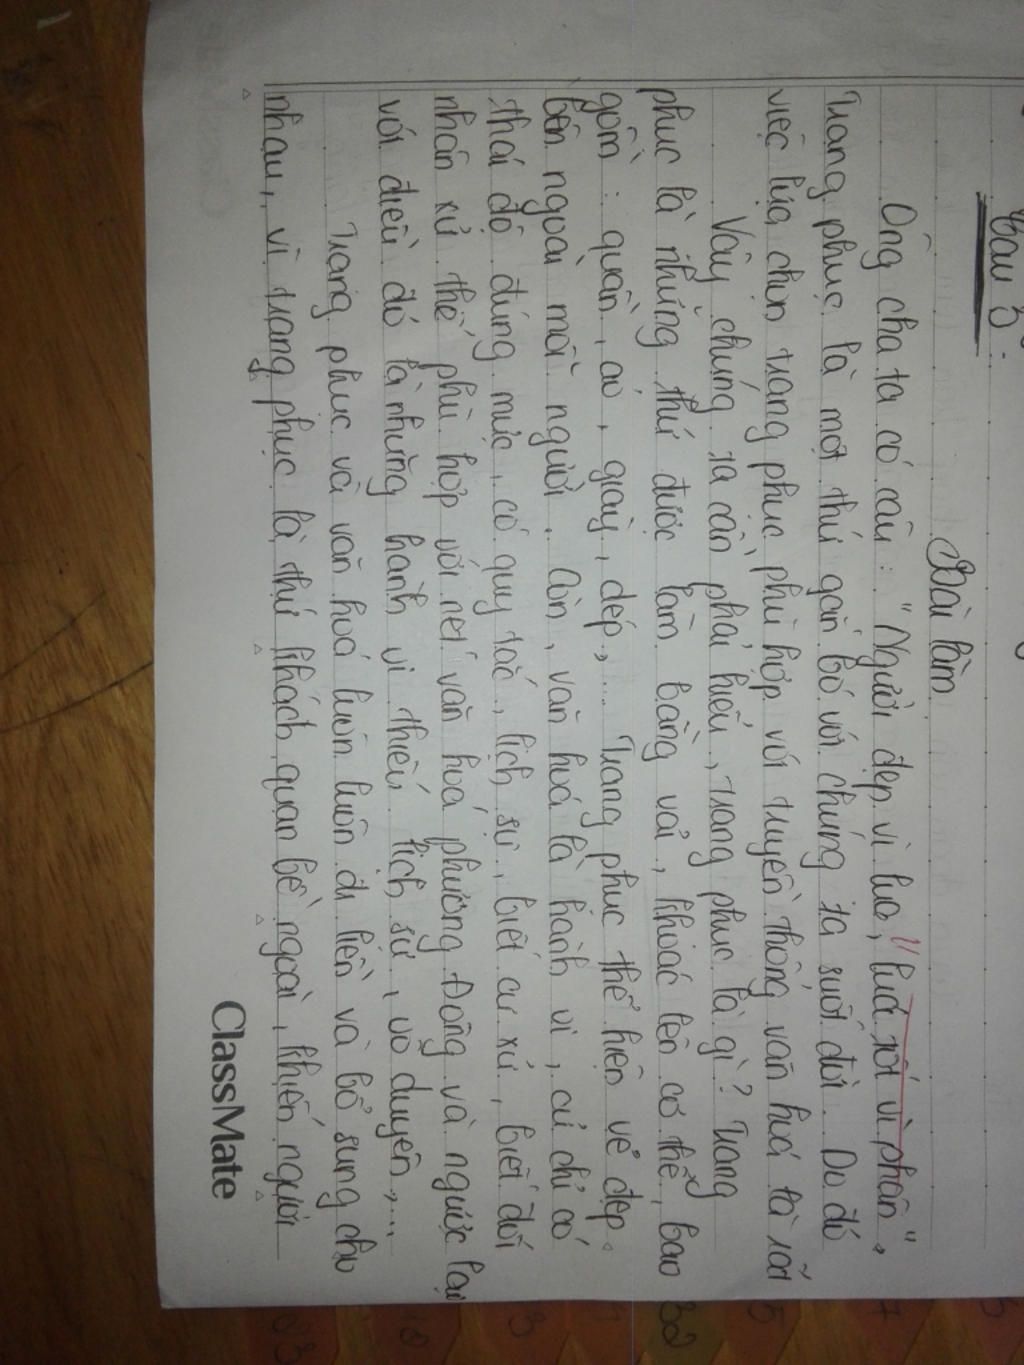 Câu 3:
Bài làm
Ông cha ta có câu: "Người đẹp vì lụa," lúa tốt vì phân",
Trang phục là một thứ gắn bó với chúng ta suốt đời. Do đó
việc lựa chọn trang phục phù hợp với truyền thống văn hoá là rất
Vậy chúng ta cần phải hiểu, trang phục là gì? Trang
phục là những thứ được làm bằng vải, khoác lên cơ thể, bao
gồm: quần, áo, giày, dép,... Trang phục thể hiện vẻ đẹp
bên ngoài mỗi người. Còn, văn hoá là hành vi, cử chỉ có
thái độ đúng mực, có quy tắc, lịch sự, biết cư xử, biết đối
nhân xử thế phù hợp với nét văn hoá phương Đông và ngược lại
với điều đó là những hành vi thiếu lịch sử, vô duyên,...
Trang phục và văn hoá luôn luôn đi liền và bổ sung cho
nhau, vì trang phục là thứ khách quan bề ngoài, khiến người
ClassMate